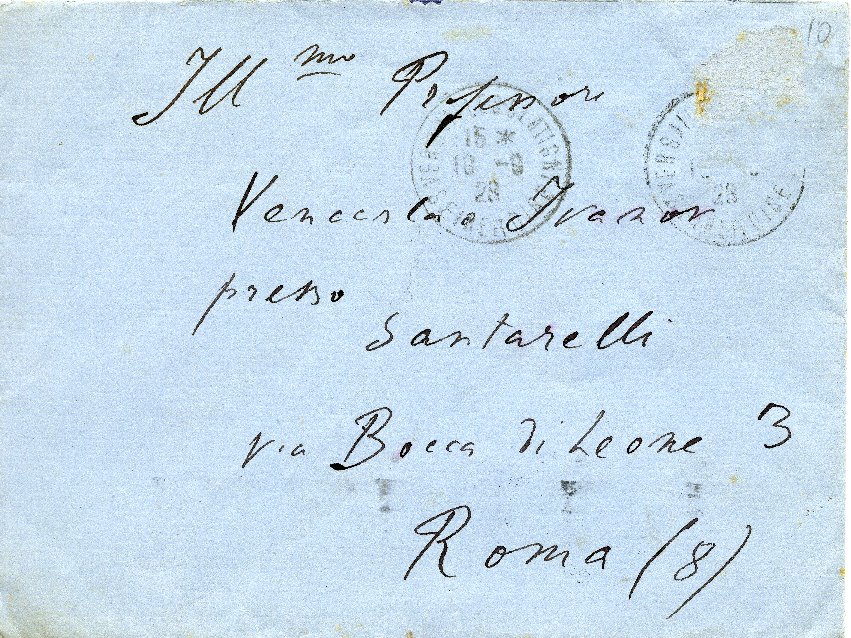 10
Ill mo Professore
Venceslao Ivanov
presso
Santarelli
via Bocca di Leone 3
Roma (8)
15 *
10 -9
28